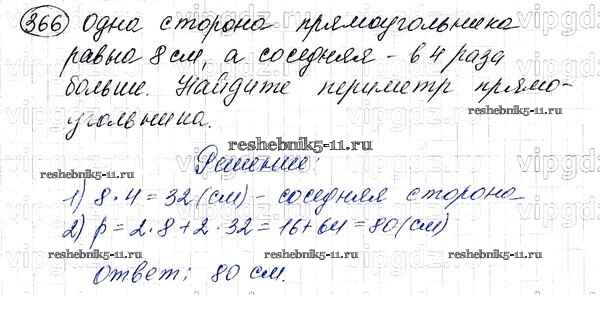 366 Одна сторона прямоугольника
равна 8 см, а соседняя - в 4 раза
больше. Найдите периметр прямо-
угольника.
reshebnik5-11.ru
Решение:
reshebnik5-11.ru reshebnik5-11.ru
1) 8 · 4 = 32 (см) - соседняя сторона
2) P = 2 · 8 + 2 · 32 = 16 + 64 = 80 (см)
reshebnik5-11.ru reshebnik5-11.ru
Ответ: 80 см.